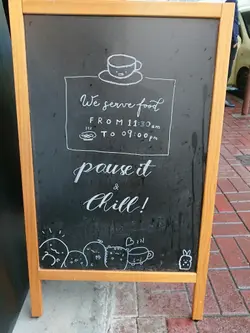 We serve food
FROM 11:30am
TO 09:00pm
pause it
&
Chill!